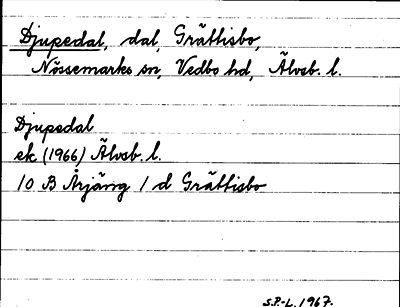 Djupedal, dal, Grättisbo,
Nössemarks sn, Vedbo hd, Älvsb. l.
Djupedal
ek (1966) Älvsb. l.
10 B Årjäng 1 d Grättisbo
S.P.-L. 1967.